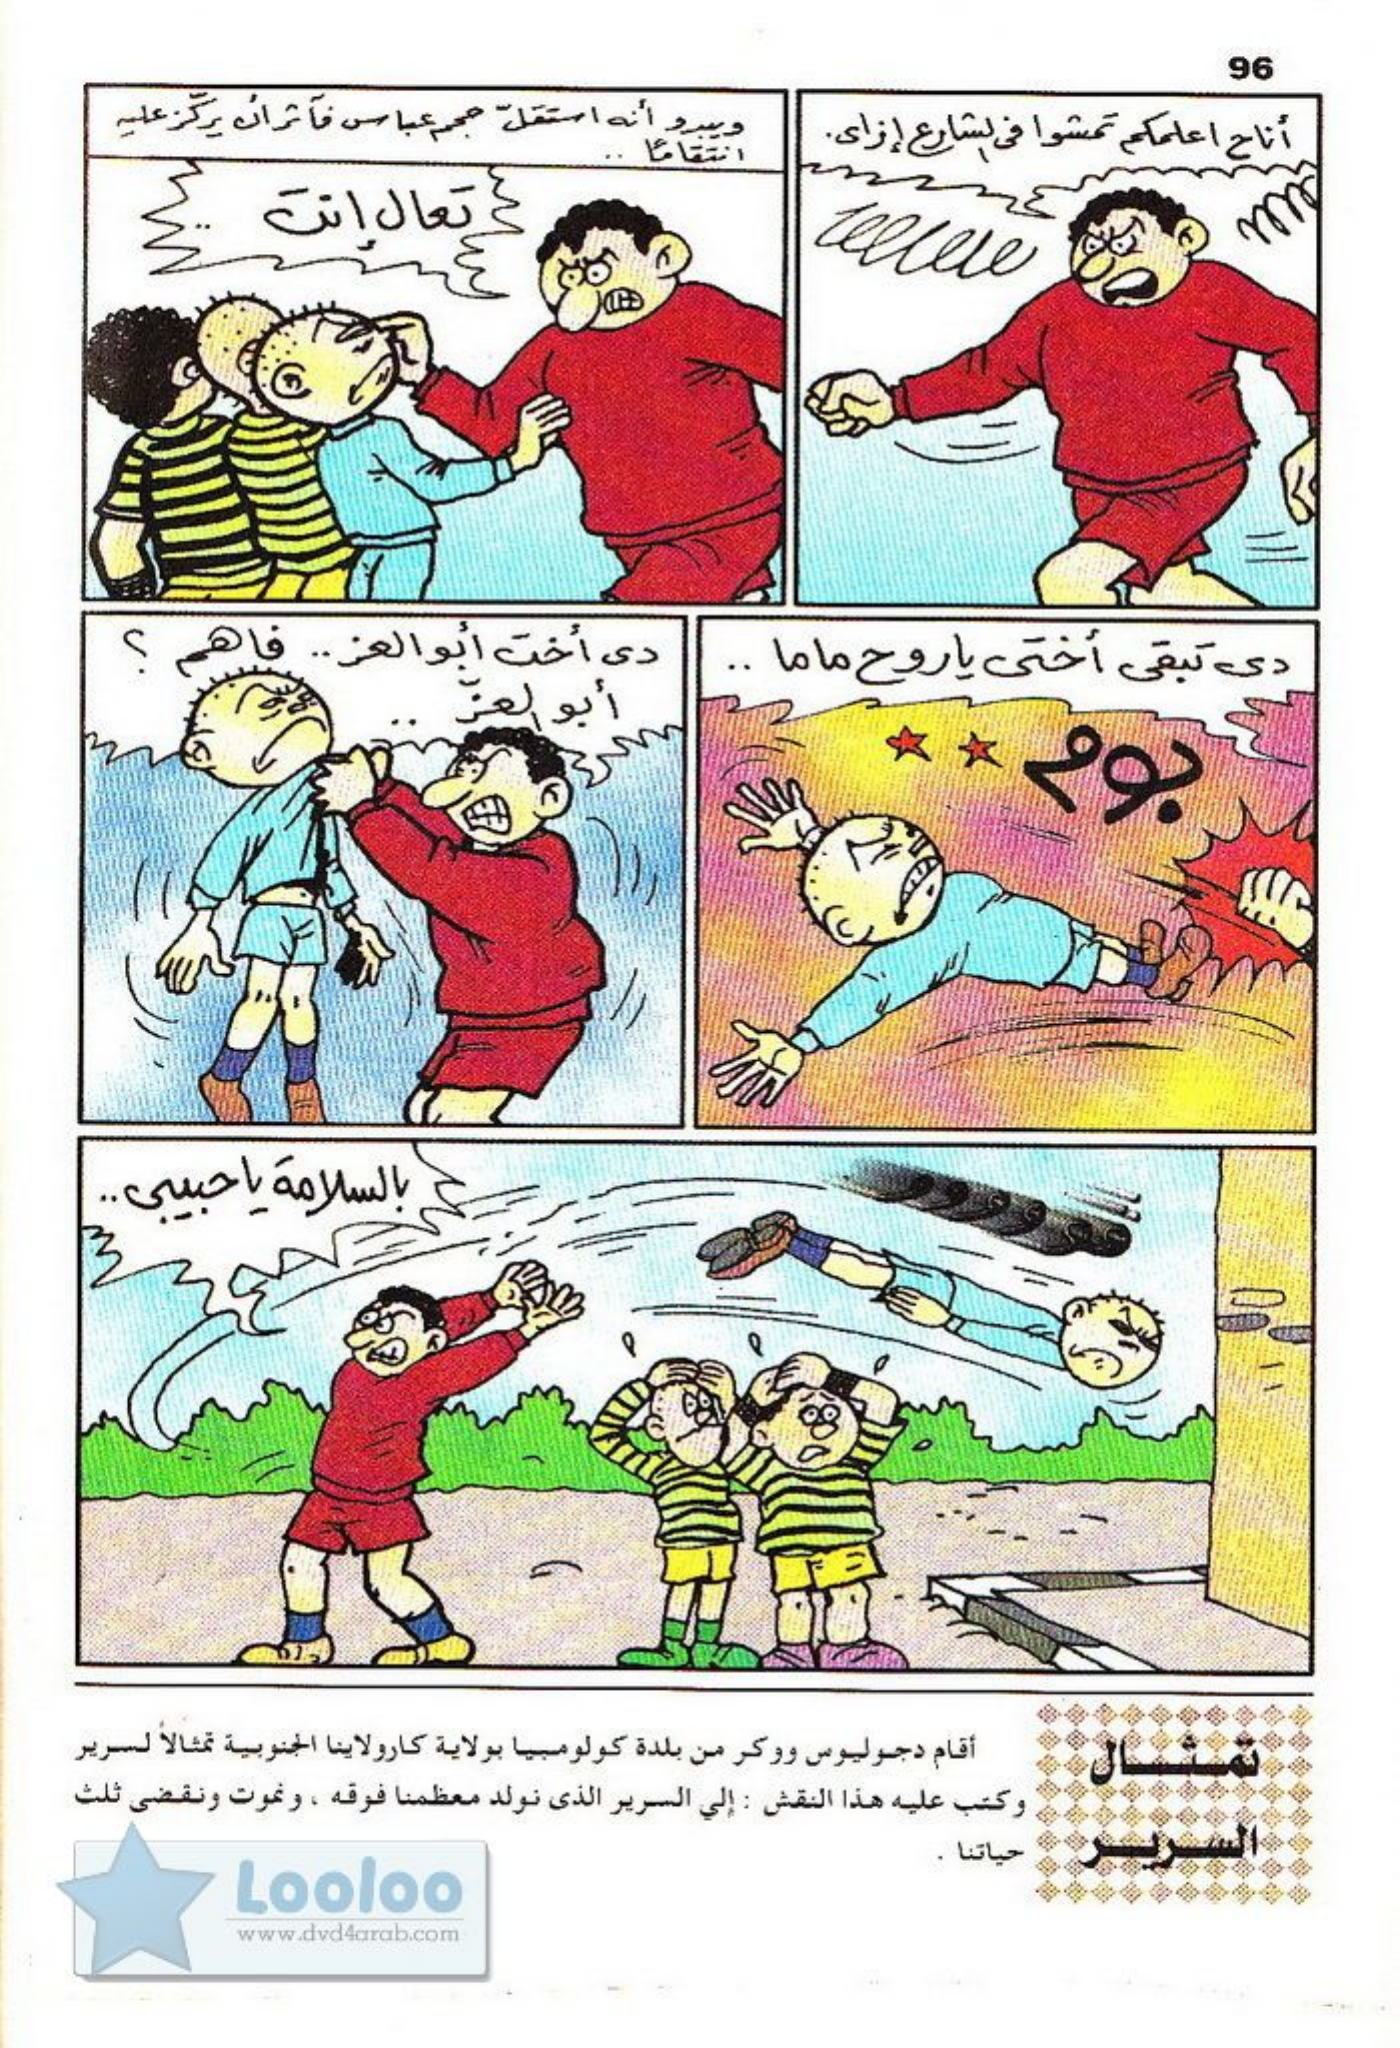 96
أناح اعلمكم تمشوا فى الشارع إزاى.
ويبدو أنه استقلّ حجم عباس فآثر أن يركّز عليه
انتقامًا ..
تعال إنت ..
دى تبقى أختى ياروح ماما ..
بوم
دى أخت أبو العز .. فاهم ؟
أبو العزّ ..
بالسلامة يا حبيبى ..
تمثال
السرير
أقام دجوليوس ووكر من بلدة كولومبيا بولاية كارولاينا الجنوبية تمثالاً لسرير
وكتب عليه هذا النقش : إلي السرير الذى نولد معظمنا فوقه ، ونموت ونقضى ثلث
حياتنا .
Looloo
www.dvd4arab.com